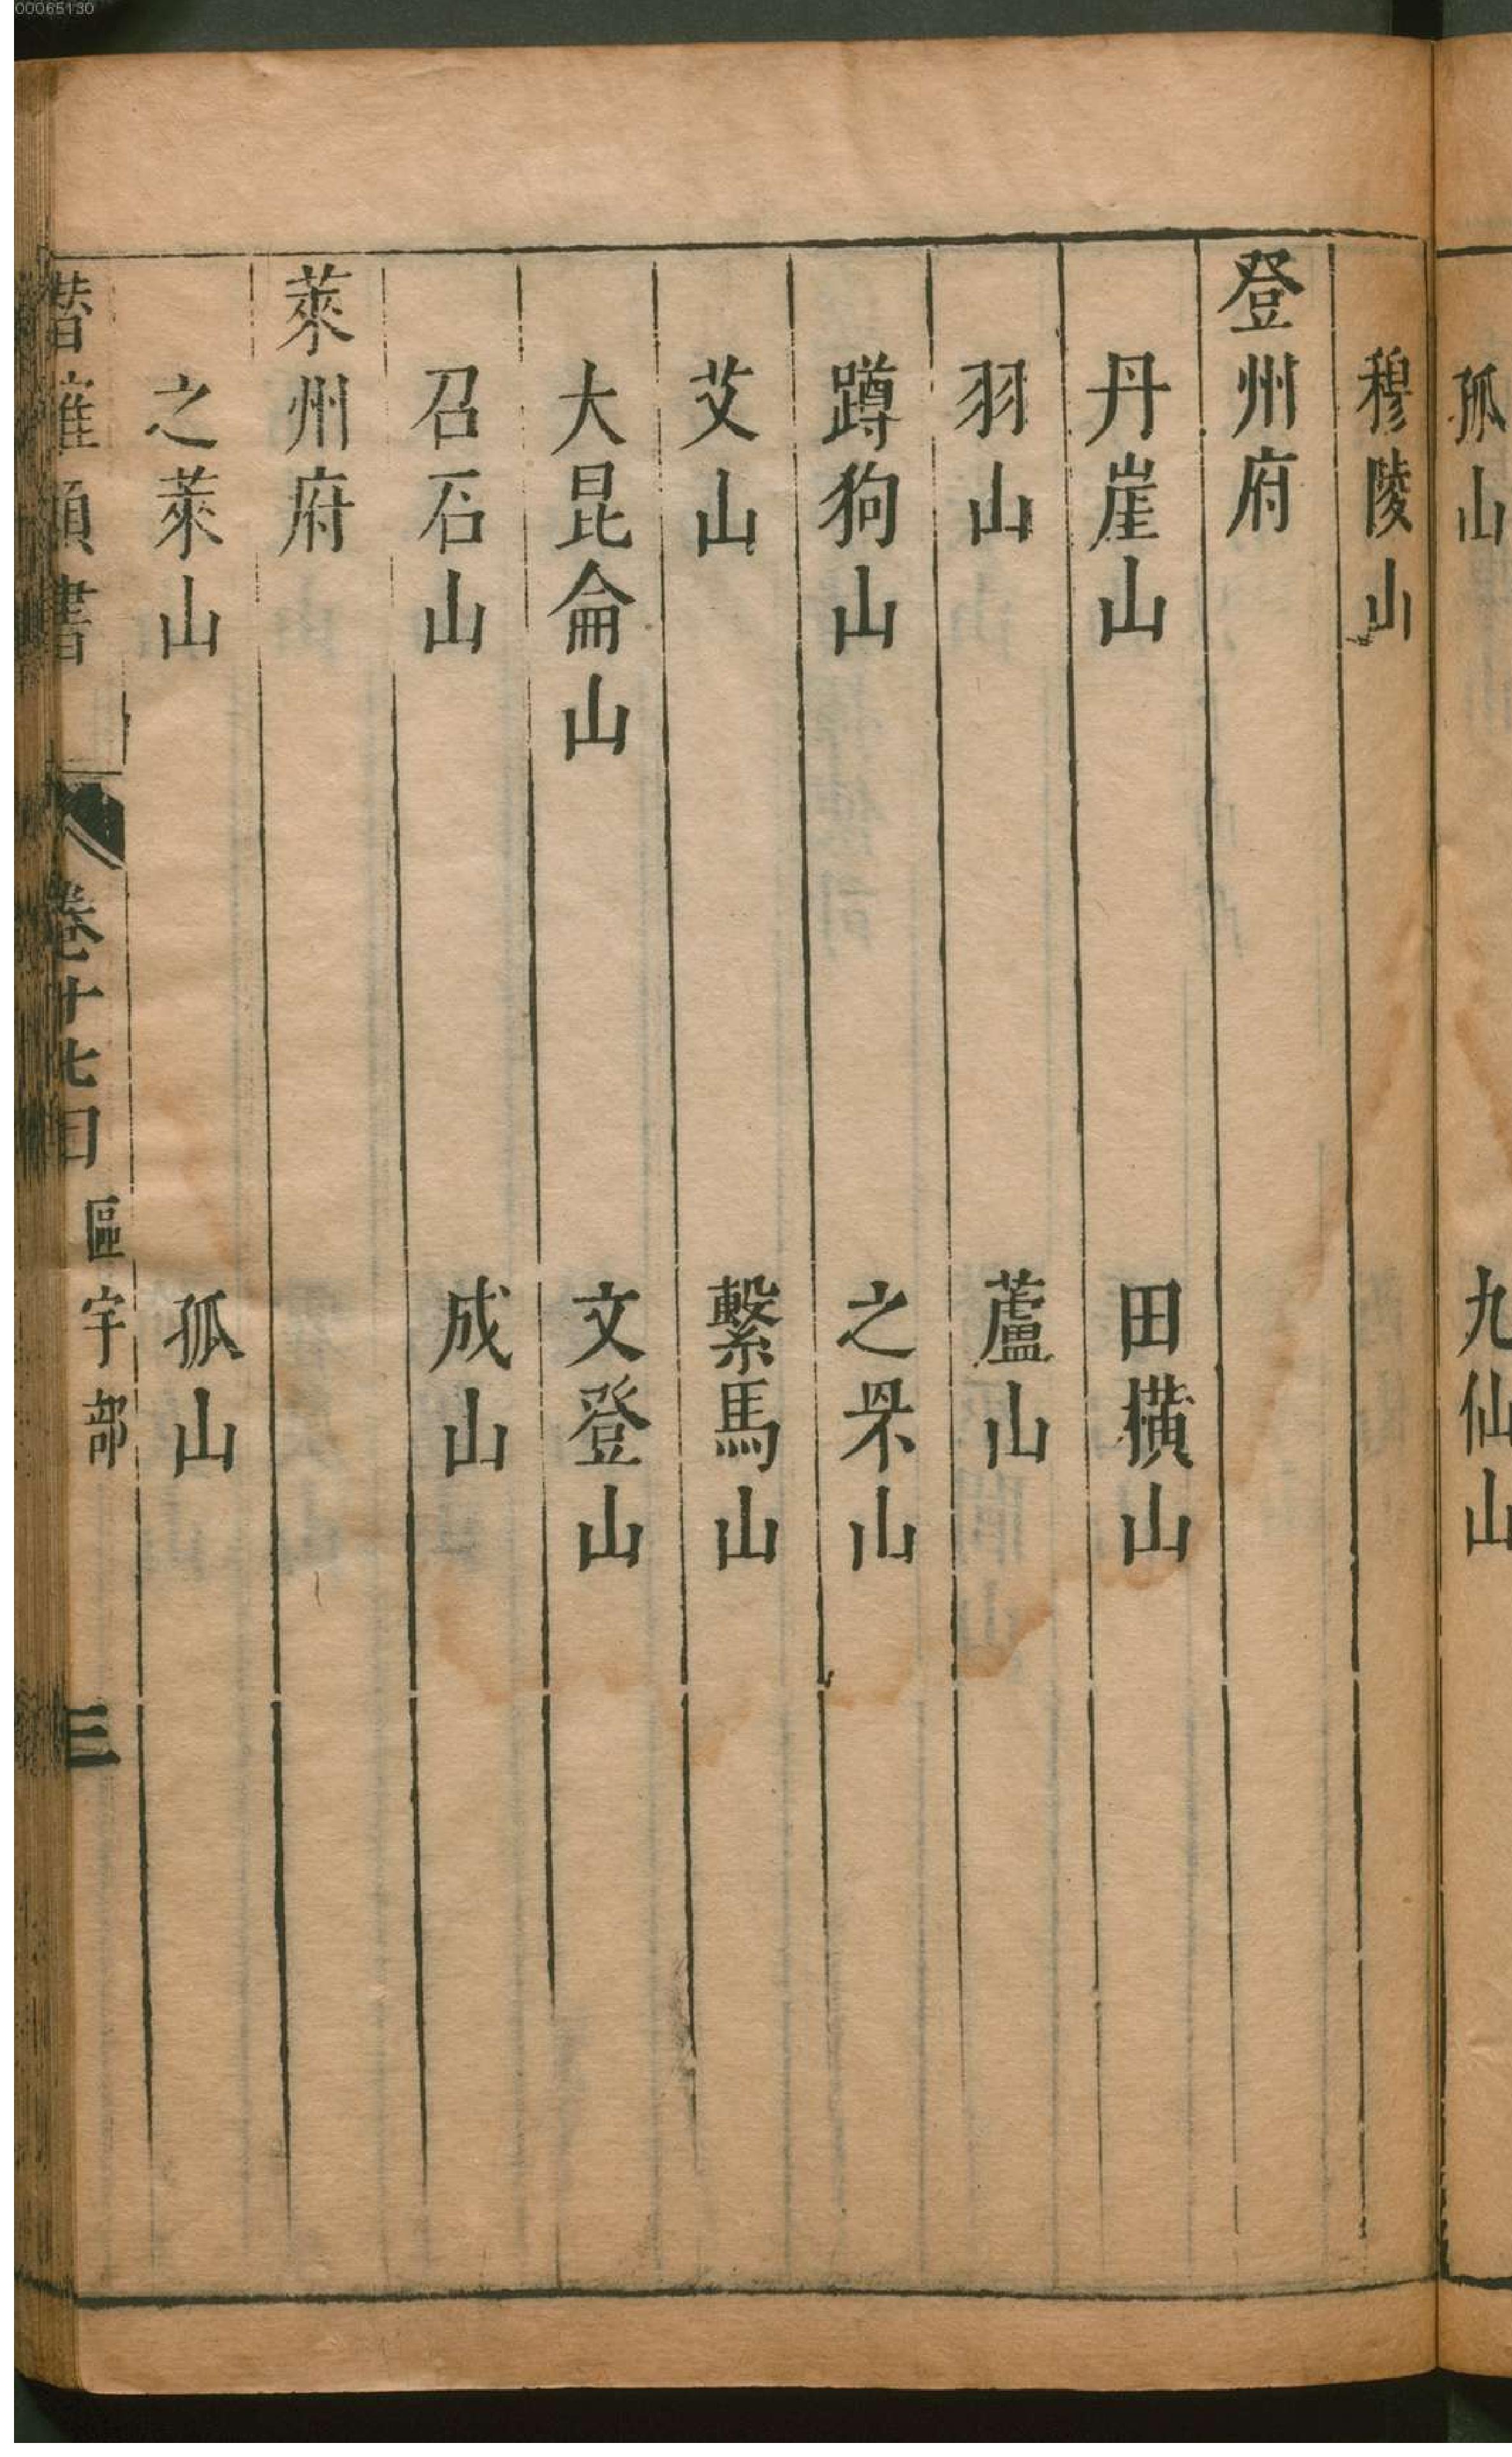 00065130
孤山 九仙山
穆陵山
登州府
丹崖山 田橫山
羽山 蘆山
蹲狗山 之罘山
艾山 繫馬山
大昆侖山 文登山
召石山 成山
萊州府
之萊山 孤山
卷十七目 區宇部 三